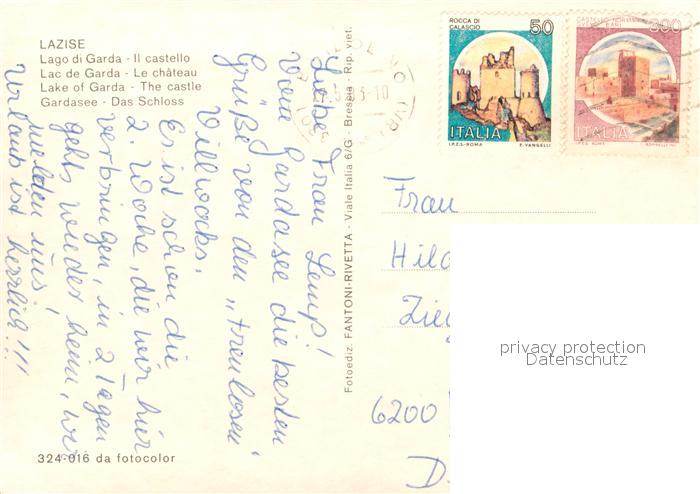 LAZISE
Lago di Garda - Il castello
Lac de Garda - Le château
Lake of Garda - The castle
Gardasee - Das Schloss
Liebe Frau Lemp!
Vom Gardasee die besten
Grüße von den "treulosen"
Willwocks.
Es ist schon die
2. Woche, die wir hier
verbringen, in 2 Tagen
gehts wieder heim, wir
melden uns!
Urlaub ist herrlich!!!
324-016 da fotocolor
Fotoediz. FANTONI-RIVETTA - Viale Italia 6/G - Brescia - Rip. viet.
ROCCA DI
CALASCIO
50
ITALIA
I.P.Z.S.-ROMA E. VANGELLI
CASTELLO NORMANNO
SVEVO BARI
300
ITALIA
I.P.Z.S. ROMA
Frau
Hild
Zieg
6200
D.
privacy protection
Datenschutz